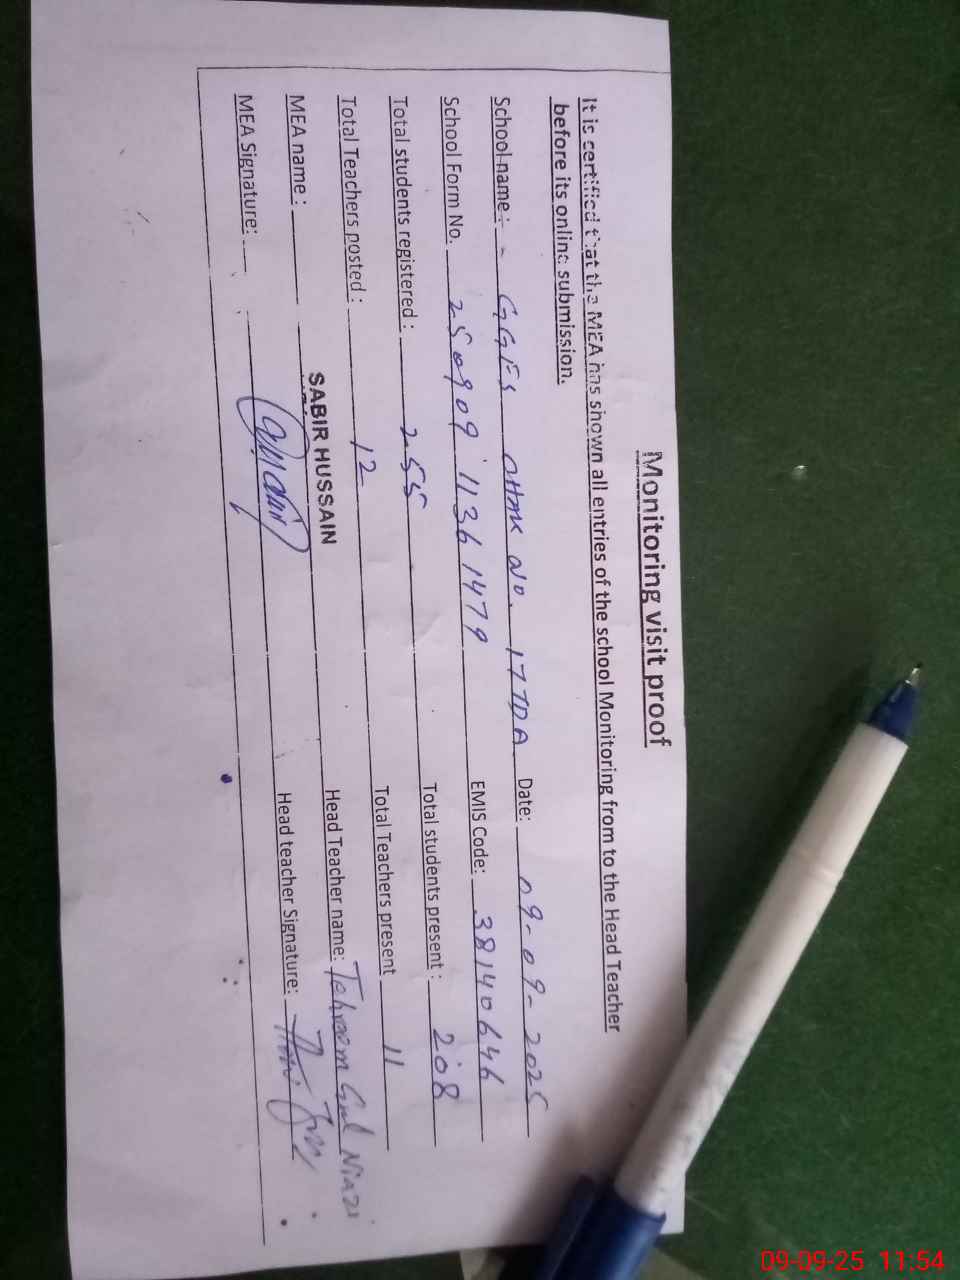 Monitoring visit proof
It is certified that the MEA has shown all entries of the school Monitoring from to the Head Teacher
before its online submission.
School name :- GGES CHAK NO. 17 TDA Date: 09-09-2025
School Form No. 25090911361479 EMIS Code: 38140646
Total students registered : 255 Total students present : 208
Total Teachers posted : 12 Total Teachers present 11
MEA name : SABIR HUSSAIN Head Teacher name: Tahreem Gul Niazi
MEA Signature: Head teacher Signature:
09-09-25 11:54